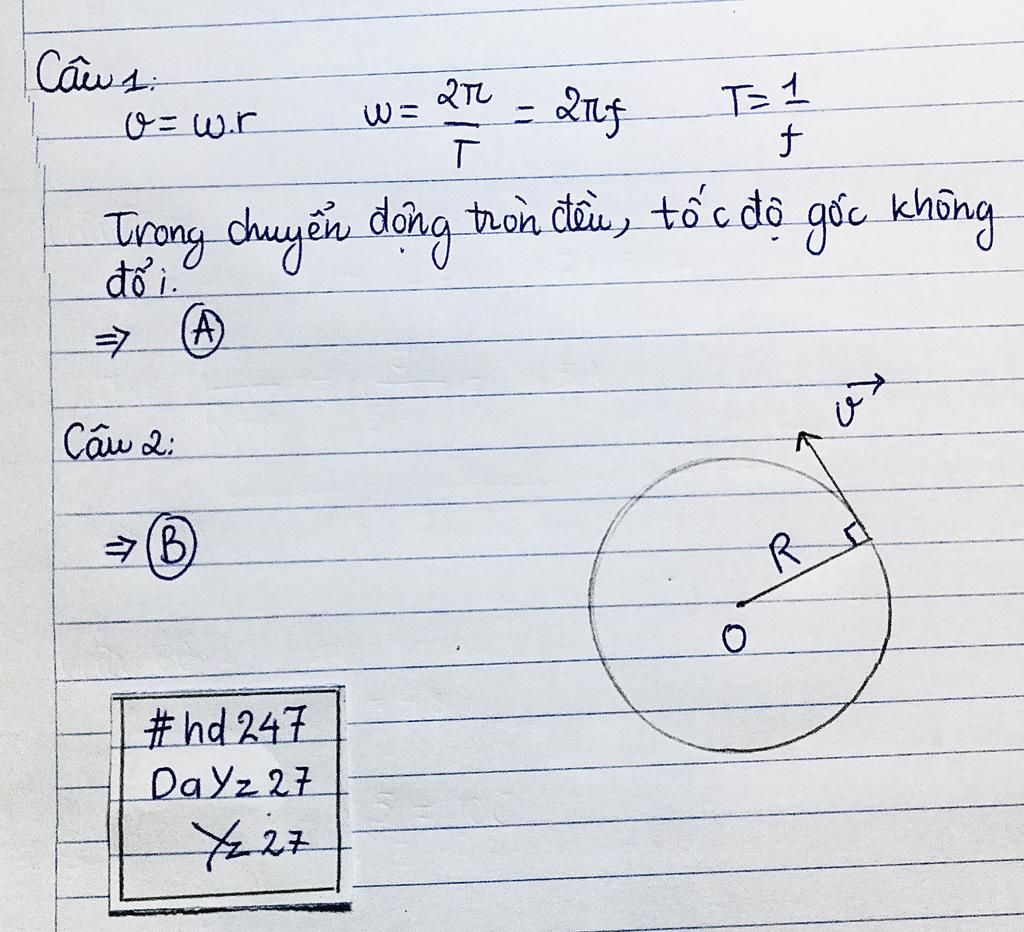 Câu 1:
v = ω.r ω = 2π/T = 2πf T = 1/f
Trong chuyển động tròn đều, tốc độ góc không
đổi.
⇒ A
Câu 2:
v⃗
⇒ B
R
O
#hd247
DaYz27
Yz27